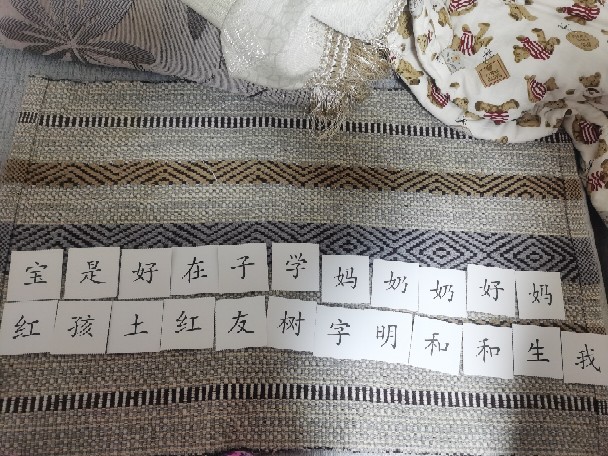 宝是好在子学妈奶奶好妈
红孩土红友树字明和和生我